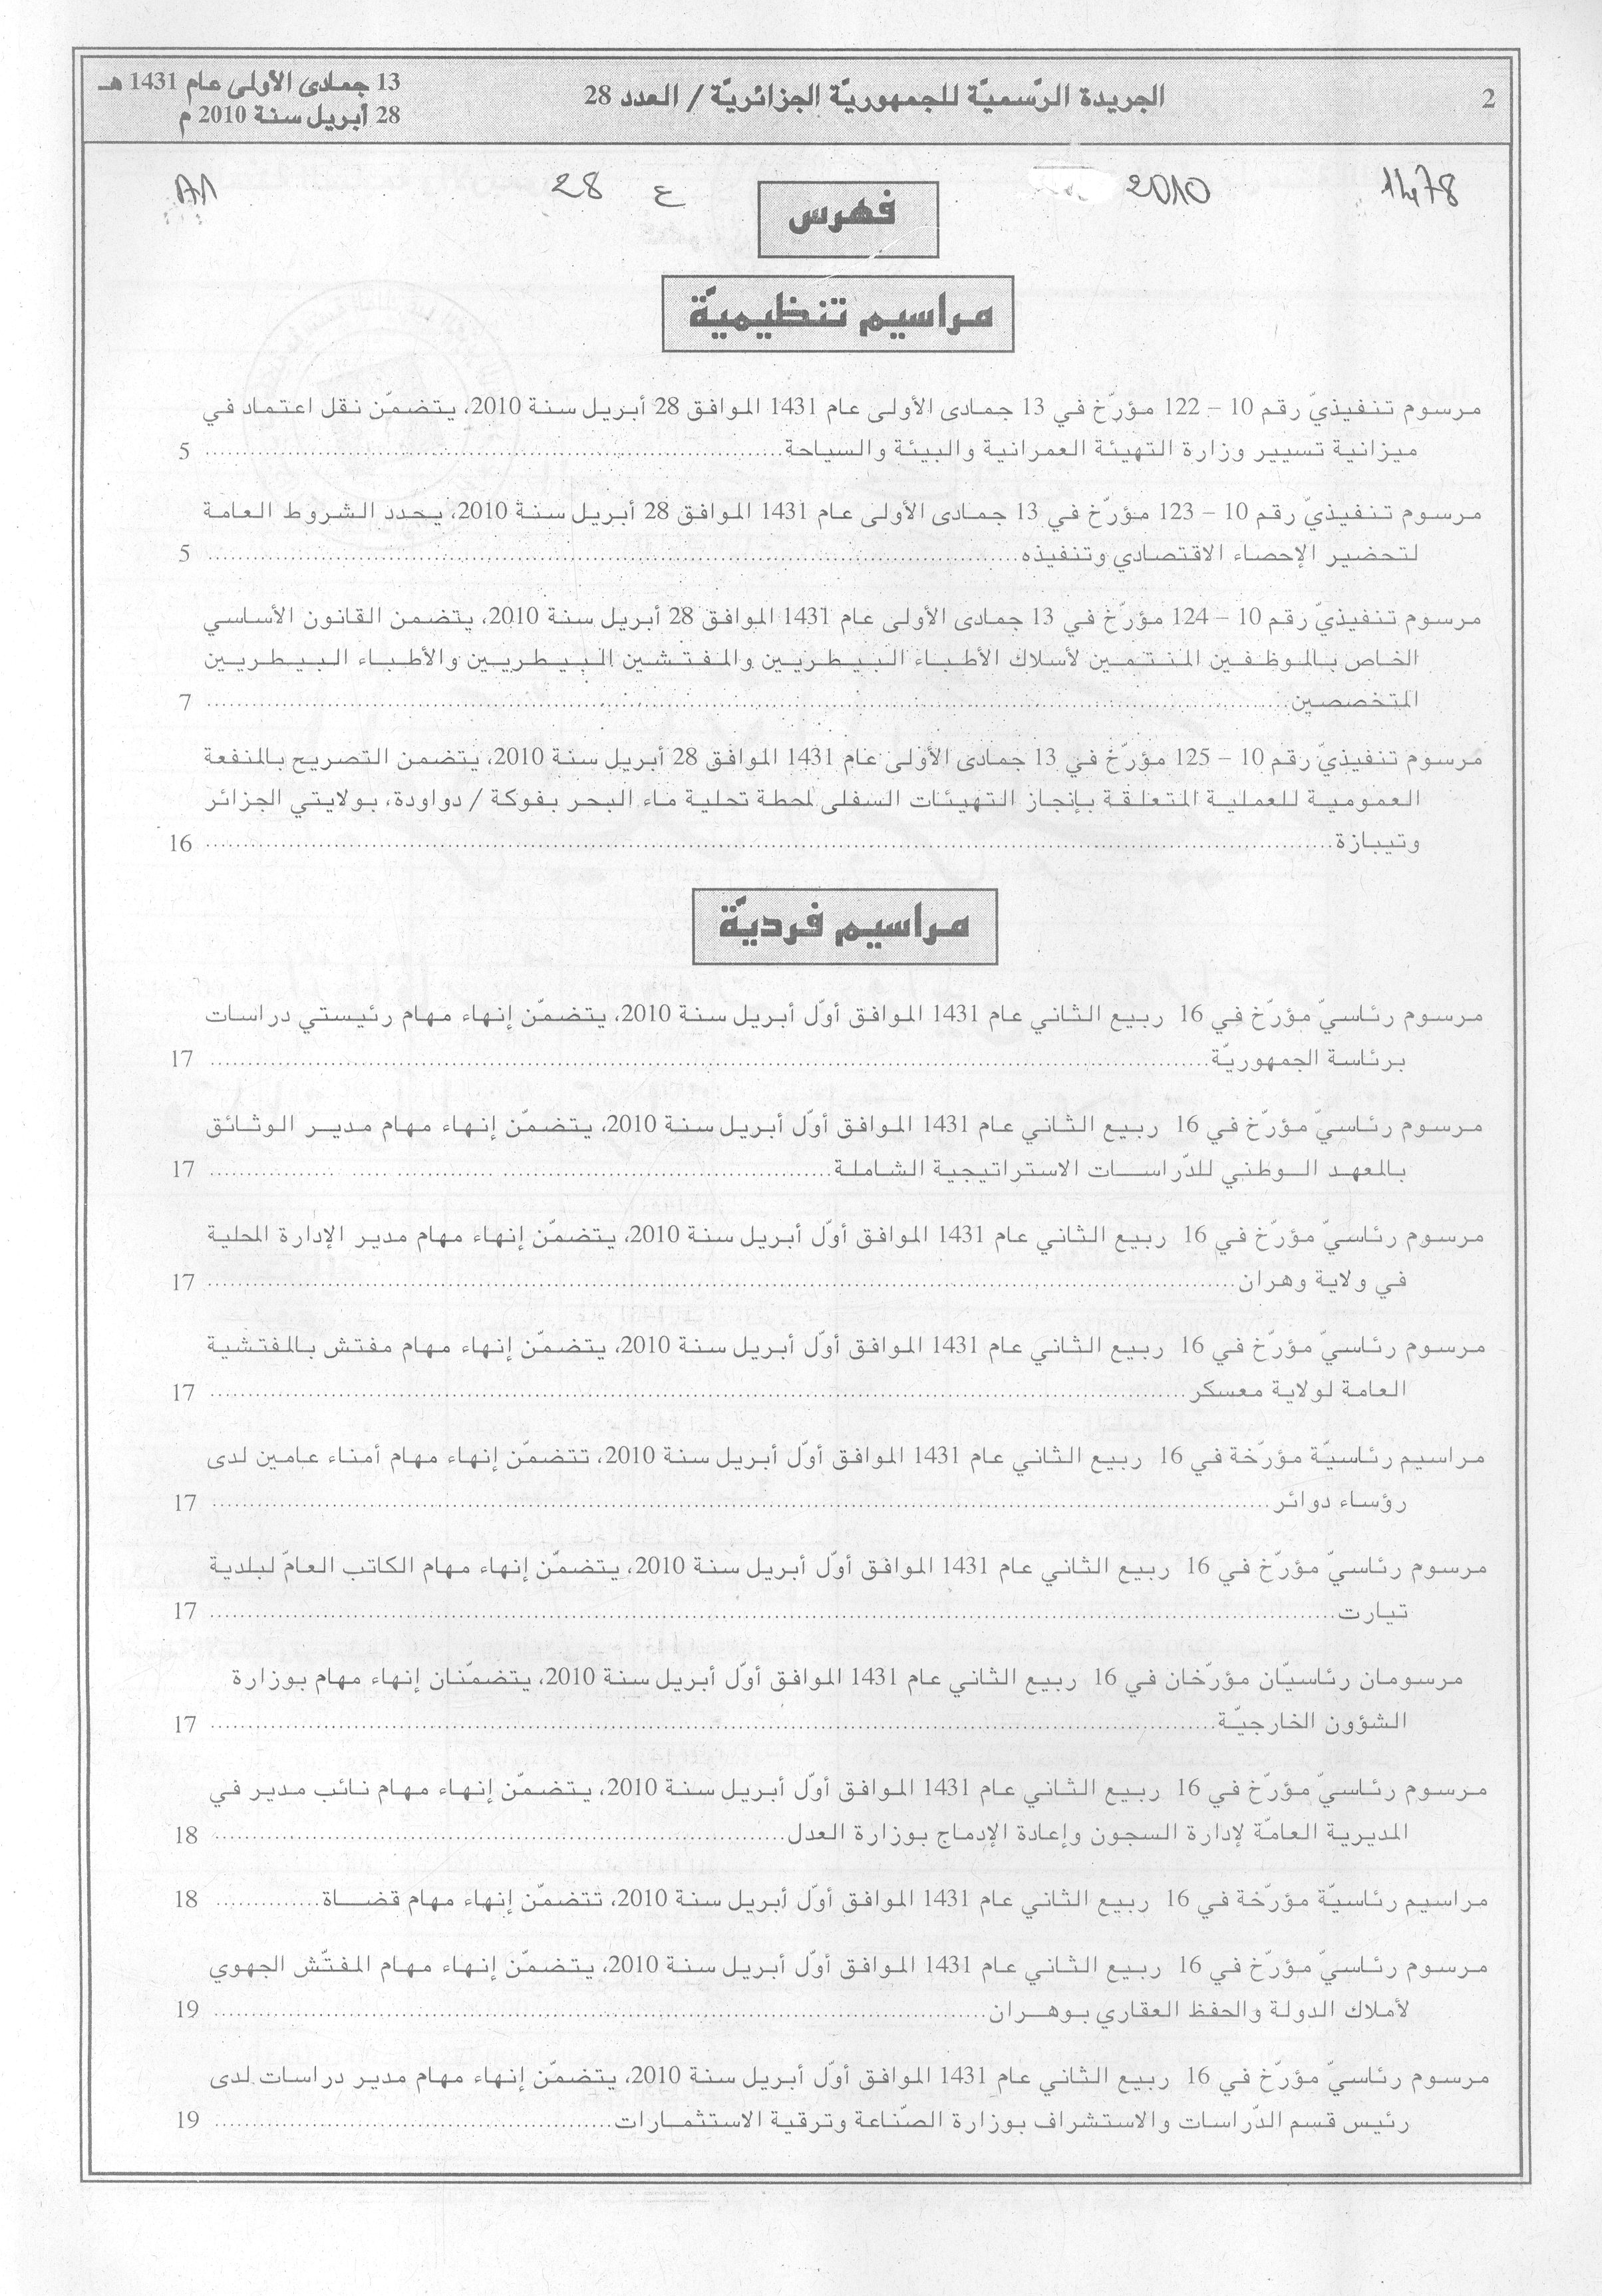 2
الجريدة الرّسميّة للجمهوريّة الجزائريّة / العدد 28
13 جمادى الأولى عام 1431 هـ
28 أبريل سنة 2010 م
1478
2010
ع 28
A1
فهرس
مراسيم تنظيميّة
مرسوم تنفيذيّ رقم 10 – 122 مؤرّخ في 13 جمادى الأولى عام 1431 الموافق 28 أبريل سنة 2010، يتضمّن نقل اعتماد في
ميزانية تسيير وزارة التهيئة العمرانية والبيئة والسياحة.......... 5
مرسوم تنفيذيّ رقم 10 – 123 مؤرّخ في 13 جمادى الأولى عام 1431 الموافق 28 أبريل سنة 2010، يحدد الشروط العامة
لتحضير الإحصاء الاقتصادي وتنفيذه.......... 5
مرسوم تنفيذيّ رقم 10 – 124 مؤرّخ في 13 جمادى الأولى عام 1431 الموافق 28 أبريل سنة 2010، يتضمن القانون الأساسي
الخاص بالموظفين المنتمين لأسلاك الأطباء البيطريين والمفتشين البيطريين والأطباء البيطريين
المتخصصين.......... 7
مرسوم تنفيذيّ رقم 10 – 125 مؤرّخ في 13 جمادى الأولى عام 1431 الموافق 28 أبريل سنة 2010، يتضمن التصريح بالمنفعة
العمومية للعملية المتعلقة بإنجاز التهيئات السفلى لمحطة تحلية ماء البحر بفوكة / دواودة، بولايتي الجزائر
وتيبازة.......... 16
مراسيم فرديّة
مرسوم رئاسيّ مؤرّخ في 16 ربيع الثاني عام 1431 الموافق أوّل أبريل سنة 2010، يتضمّن إنهاء مهام رئيستي دراسات
برئاسة الجمهوريّة.......... 17
مرسوم رئاسيّ مؤرّخ في 16 ربيع الثاني عام 1431 الموافق أوّل أبريل سنة 2010، يتضمّن إنهاء مهام مدير الوثائق
بالمعهد الوطني للدّراسات الاستراتيجية الشاملة.......... 17
مرسوم رئاسيّ مؤرّخ في 16 ربيع الثاني عام 1431 الموافق أوّل أبريل سنة 2010، يتضمّن إنهاء مهام مدير الإدارة المحلية
في ولاية وهران.......... 17
مرسوم رئاسيّ مؤرّخ في 16 ربيع الثاني عام 1431 الموافق أوّل أبريل سنة 2010، يتضمّن إنهاء مهام مفتش بالمفتشية
العامة لولاية معسكر.......... 17
مراسيم رئاسيّة مؤرّخة في 16 ربيع الثاني عام 1431 الموافق أوّل أبريل سنة 2010، تتضمّن إنهاء مهام أمناء عامين لدى
رؤساء دوائر.......... 17
مرسوم رئاسيّ مؤرّخ في 16 ربيع الثاني عام 1431 الموافق أوّل أبريل سنة 2010، يتضمّن إنهاء مهام الكاتب العامّ لبلدية
تيارت.......... 17
مرسومان رئاسيّان مؤرّخان في 16 ربيع الثاني عام 1431 الموافق أوّل أبريل سنة 2010، يتضمّنان إنهاء مهام بوزارة
الشؤون الخارجيّة.......... 17
مرسوم رئاسيّ مؤرّخ في 16 ربيع الثاني عام 1431 الموافق أوّل أبريل سنة 2010، يتضمّن إنهاء مهام نائب مدير في
المديرية العامّة لإدارة السجون وإعادة الإدماج بوزارة العدل.......... 18
مراسيم رئاسيّة مؤرّخة في 16 ربيع الثاني عام 1431 الموافق أوّل أبريل سنة 2010، تتضمّن إنهاء مهام قضاة.......... 18
مرسوم رئاسيّ مؤرّخ في 16 ربيع الثاني عام 1431 الموافق أوّل أبريل سنة 2010، يتضمّن إنهاء مهام المفتّش الجهوي
لأملاك الدولة والحفظ العقاري بوهران.......... 19
مرسوم رئاسيّ مؤرّخ في 16 ربيع الثاني عام 1431 الموافق أوّل أبريل سنة 2010، يتضمّن إنهاء مهام مدير دراسات لدى
رئيس قسم الدّراسات والاستشراف بوزارة الصّناعة وترقية الاستثمارات.......... 19